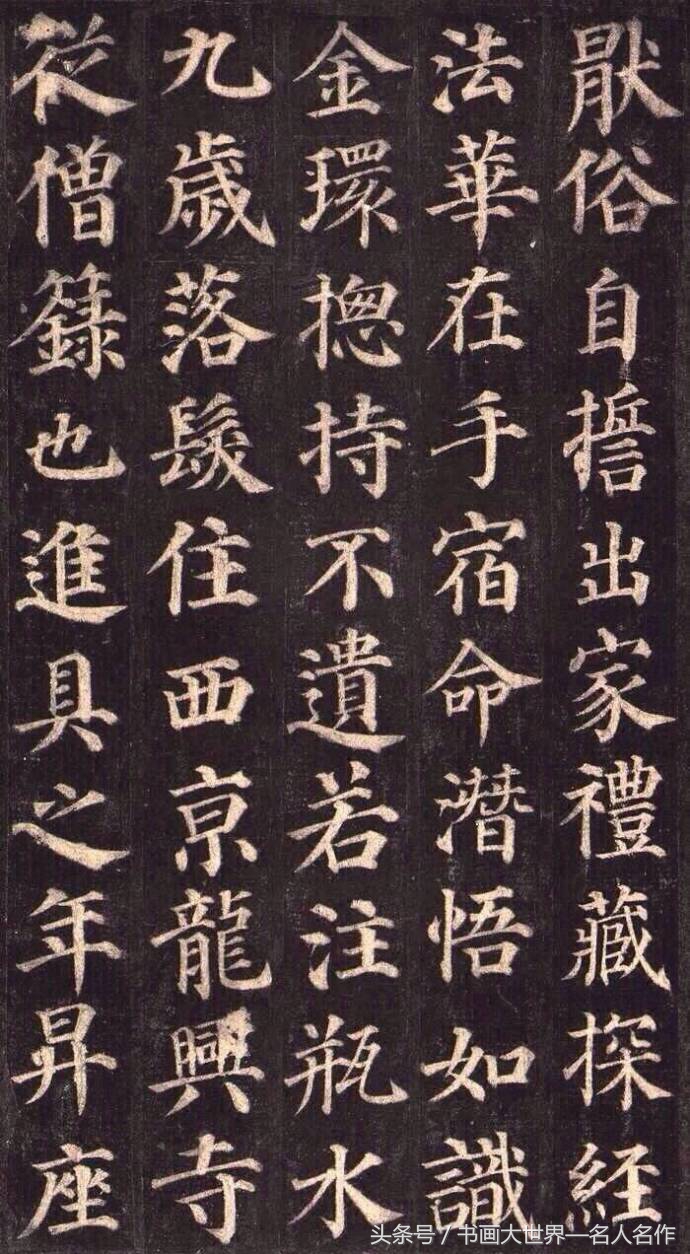 厭俗自誓出家禮藏探經
法華在手宿命潛悟如識
金環揔持不遺若注瓶水
九歲落髮住西京龍興寺
從僧籙也進具之年昇座
头条号 / 书画大世界—名人名作